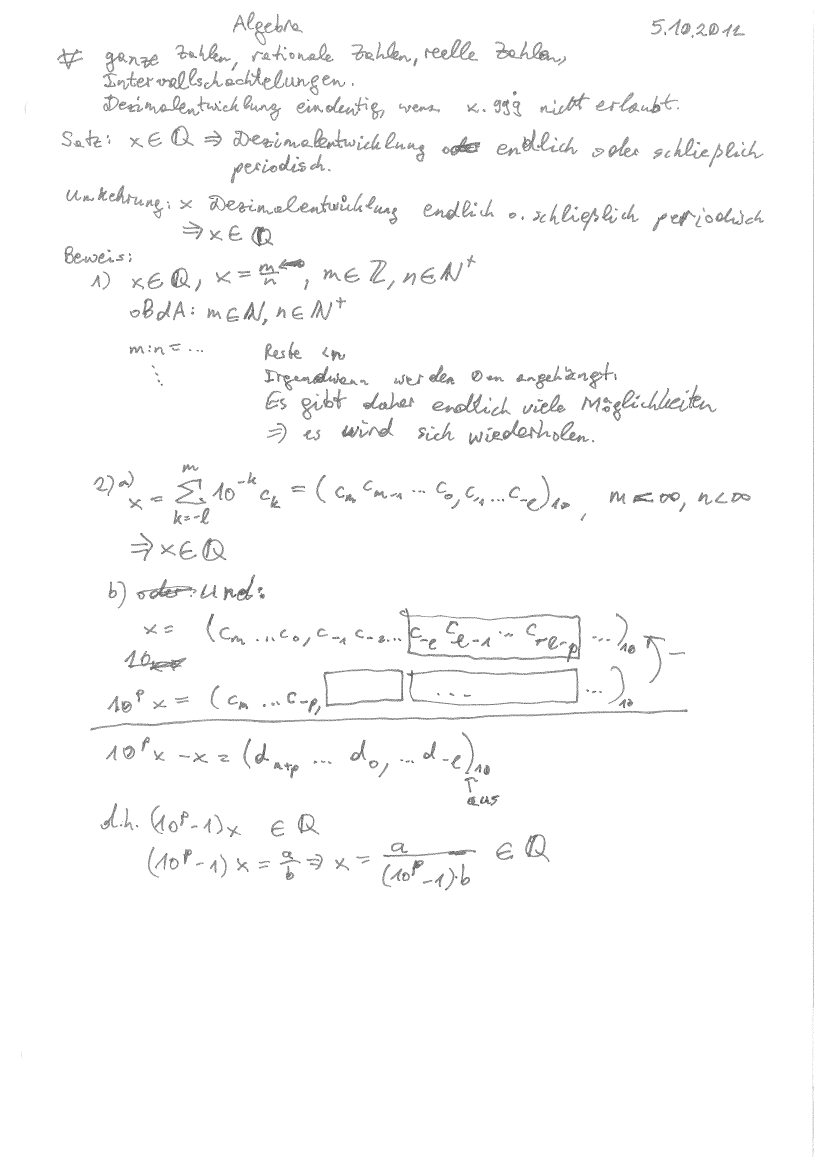 Algebra 5.10.2012
∀ ganze Zahlen, rationale Zahlen, reelle Zahlen,
Intervallschachtelungen.
Dezimalentwicklung eindeutig, wenn x.999̇ nicht erlaubt.
Satz: x ∈ ℚ ⇒ Dezimalentwicklung oder endlich oder schließlich
periodisch.
Umkehrung: x Dezimalentwicklung endlich o. schließlich periodisch
⇒ x ∈ ℚ
Beweis:
1) x ∈ ℚ, x = m/n, m ∈ ℤ, n ∈ ℕ⁺
oBdA: m ∈ ℕ, n ∈ ℕ⁺
m:n = ... Reste <n
⋮ Irgendwann werden 0en angehängt.
Es gibt daher endlich viele Möglichkeiten
⇒ es wird sich wiederholen.
2) a) x = ∑_{k=-l}^{m} 10^{-k} c_k = (c_m c_{m-1} ... c_0, c_{-1} ... c_{-l})_{10}, m < ∞, n < ∞
⇒ x ∈ ℚ
b) oder: und:
x = (c_m ... c_0, c_{-1} c_{-2} ... c_{-l} c_{l-1} ... c_{-l-p} ...)_{10} −
10
10^p x = (c_m ... c_{-p}, ... ...)_{10}
10^p x − x = (d_{n+p} ... d_0, ... d_{-l})_{10}
↑
aus
d.h. (10^p − 1) x ∈ ℚ
(10^p − 1) x = a/b ⇒ x = a/((10^p − 1)·b) ∈ ℚ